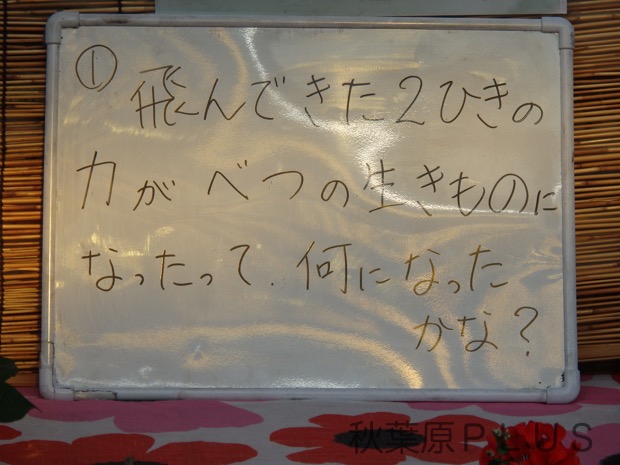 ① 飛んできた2ひきの
力がべつの生きものに
なったって.何になった
かな?
秋葉原PLUS